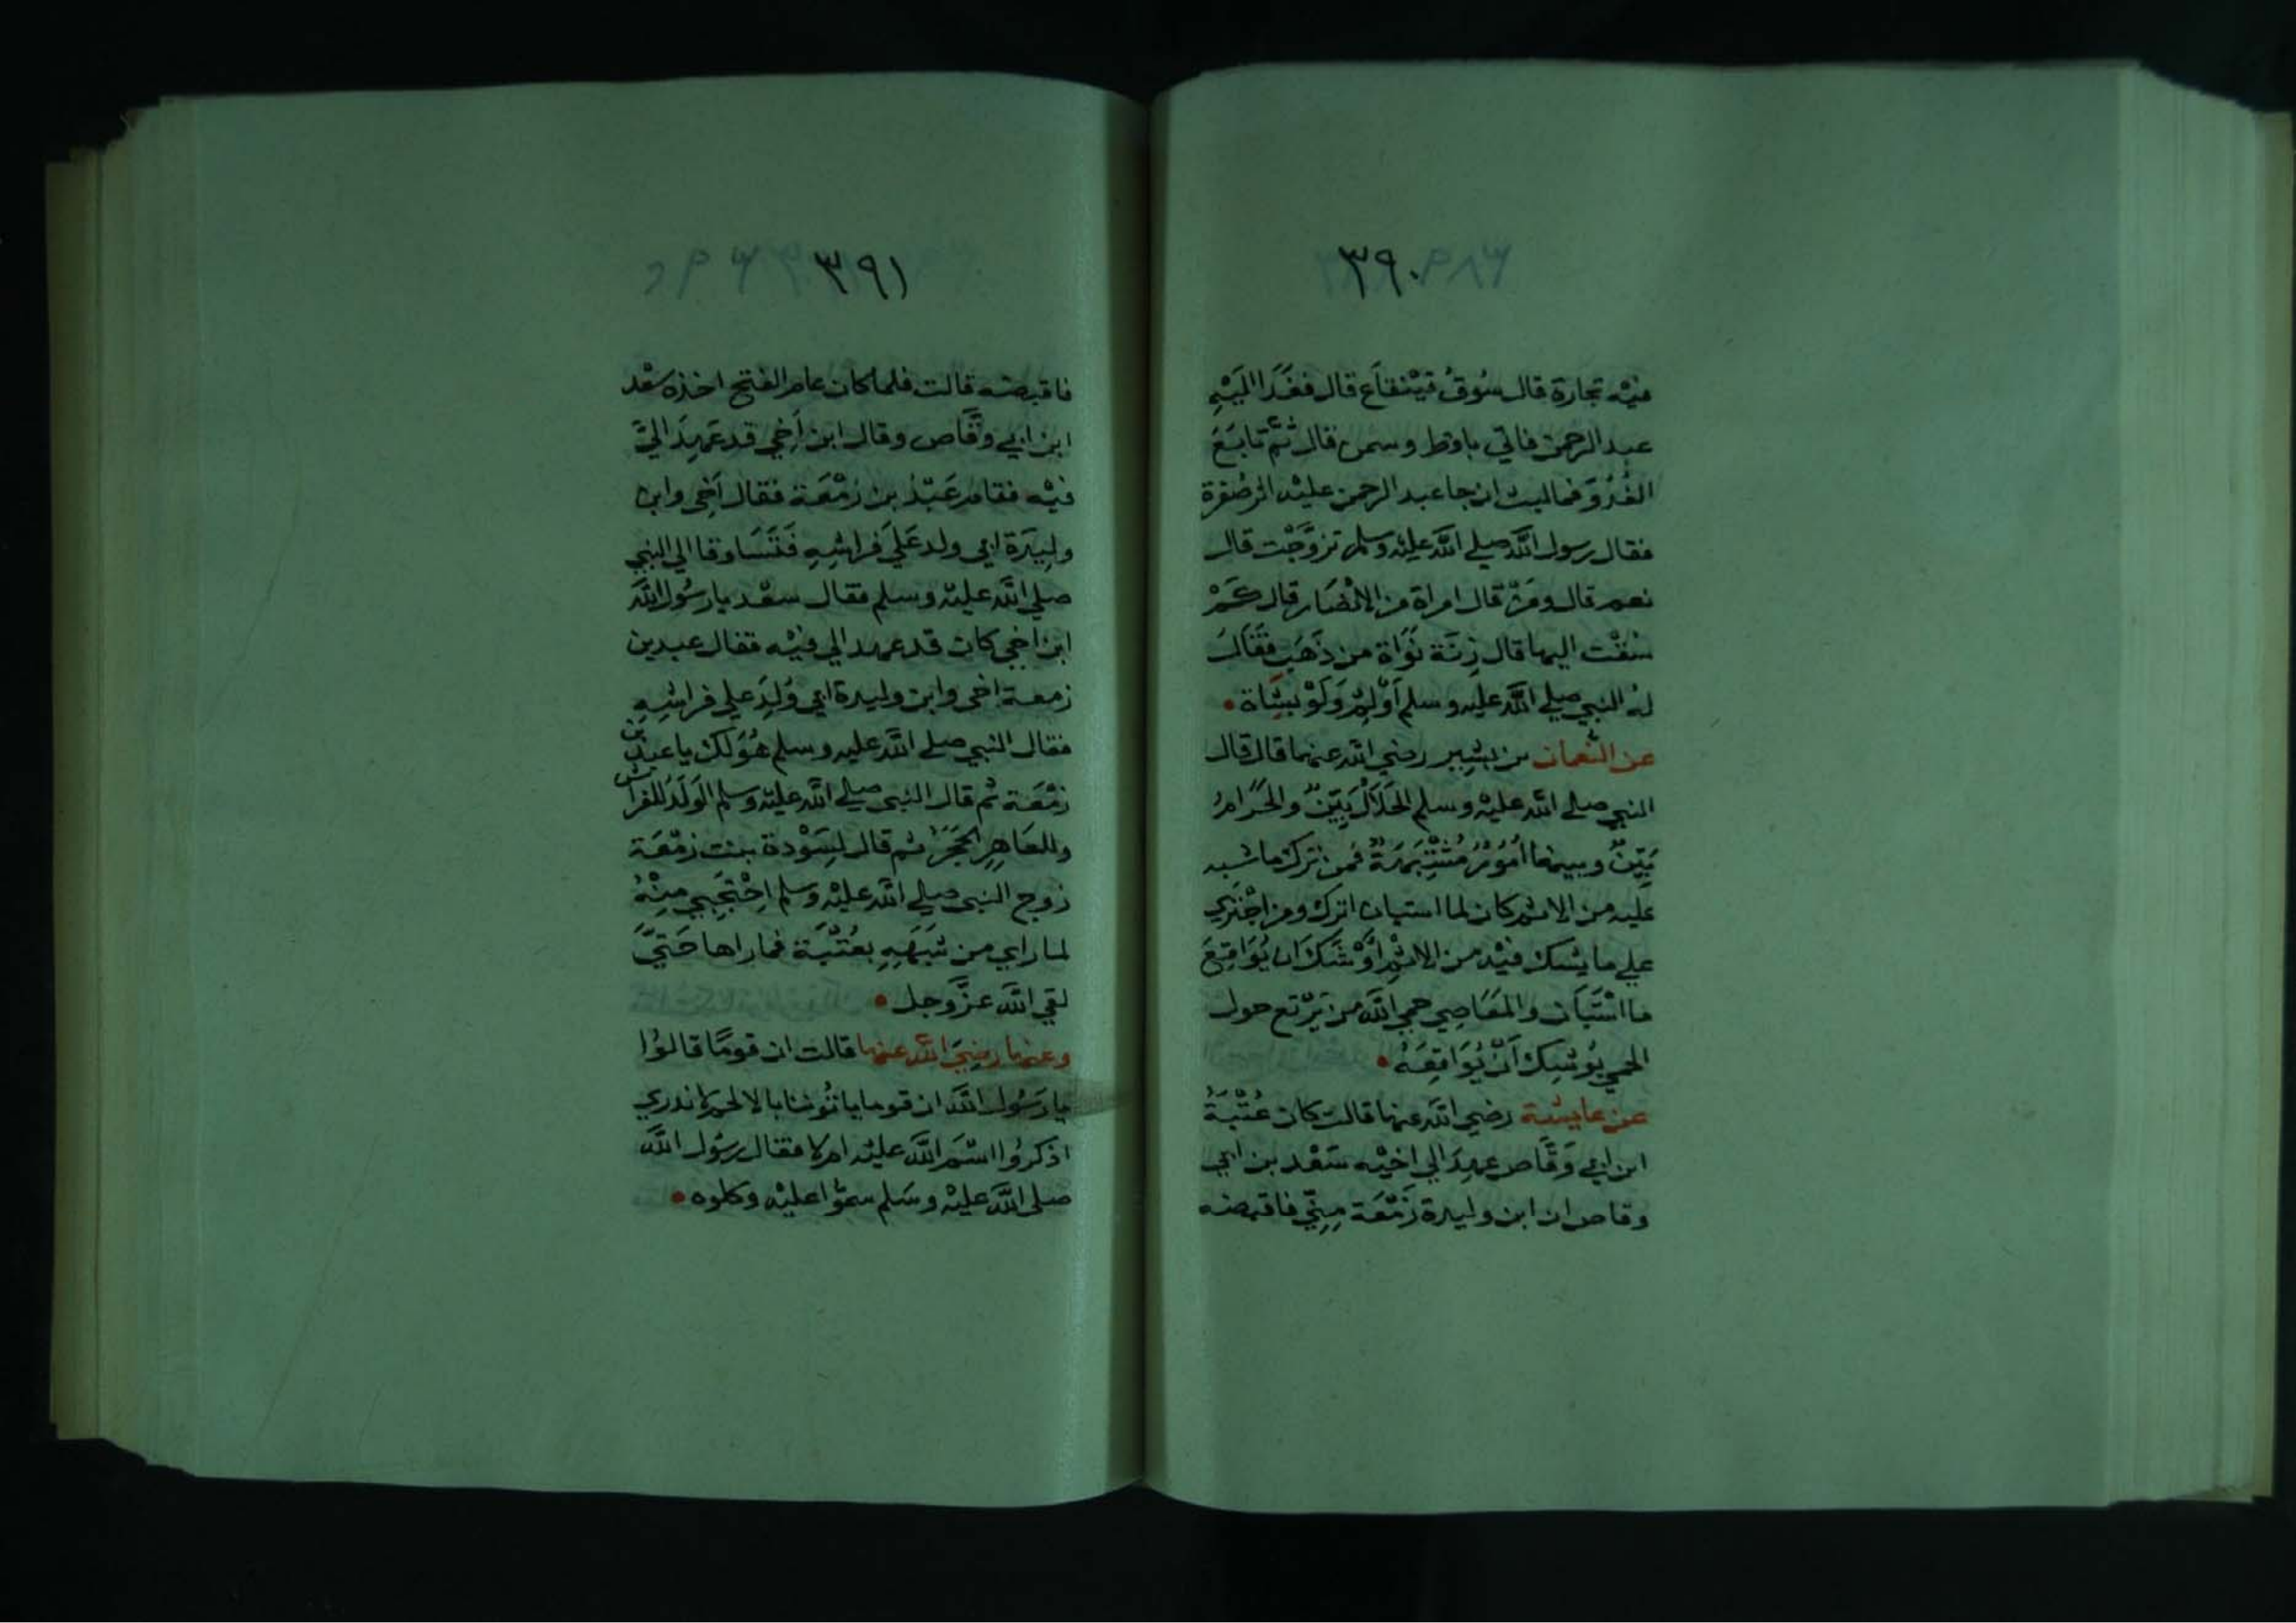 ٣٩٠
فيْه تجارة قال سُوقُ قيْنقاَع قال فغَدَا اليَهِ
عبد الرحمن فاتي باقط وسمن قال ثمَّ تابَعَ
الغُدُوَّ فما لبث ان جا عبد الرحمن عليْه اثر صُفرة
فقال رسول اللَّه صلي اللَّه عليْه وسلم تزوَّجْت قال
نعم قال ومَنْ قال امراة من الانْصَار قال كَمْ
سُقْت اليها قال زِنَة نَوَاة من ذَهَب فقَال
لهُ النبي صلي اللَّه عليه وسلم اَوْلِمْ وَلَوْ بِشَاة
عن النُّعمان بن بشير رضي اللَّه عنهما قال قال
النبي صلي اللَّه عليْه وسلم الحَلاَلُ بَيِّنٌ والحَرَامُ
بَيِّنٌ وبينهما اُمُوْرٌ مُشْتَبِهَةٌ فمن ترك ما شبه
عليه من الاثم كان لما استبان اترك ومن اجْتري
علي ما يشك فيْه من الاثْمِ اَوْشَكَ ان يُوَاقِعَ
ما اسْتَبَان والمَعَاصِي حمي اللَّه من يَرْتع حول
الحمي يُوشِك اَنْ يُوَاقِعَهُ
عن عايشة رضي اللَّه عنها قالت كان عُتْبَةُ
ابن ابي وَقَّاص عهِدَ الي اخيْه سَعْد بن ابي
وقاص ان ابن وليدة زَمْعَة مِنّي فاقبضه
٣٩١
فاقبضه قالت فلما كان عام الفتح اخذه سعْد
ابن ابي وقَّاص وقال ابن اَخِي قد عَهِدَ اليَّ
فيْه فقام عَبْدُ بن زَمْعَة فقال اَخِي وابن
ولِيدَة ابي ولد عَلَي فراشِهِ فَتَسَاوقا الي النبي
صلي اللَّه عليْه وسلم فقال سعْد يا رسُول اللَّه
ابن اخي كان قد عهد الي فيْه فقال عبد بن
زمعة اخي وابن وليدة ابي وُلِدَ علي فراشِهِ
فقال النبي صلي اللَّه عليه وسلم هُوَ لَك يا عبد بن
زمْعَة ثم قال النبي صلي اللَّه عليْه وسلم الوَلَدُ للفراش
وللعَاهِرِ الحَجَرُ ثم قال لِسَوْدة بنت زمْعَة
زوج النبي صلي اللَّه عليْه وسلم احْتَجِبي مِنْهُ
لما راي من شَبَهِهِ بعُتْبَة فما راها حَتيَّ
لقي اللَّه عزَّ وجل
وعنها رضِيَ اللَّه عنها قالت ان قومًا قالوُا
يا رَسُول اللَّه ان قوما ياتُوننا بالالحم لا ندري
اذكرُوا اسْمَ اللَّه عليْه ام لا فقال رسُول اللَّه
صلي اللَّه عليْه وسَلم سمُّوا عليْه وكلوه